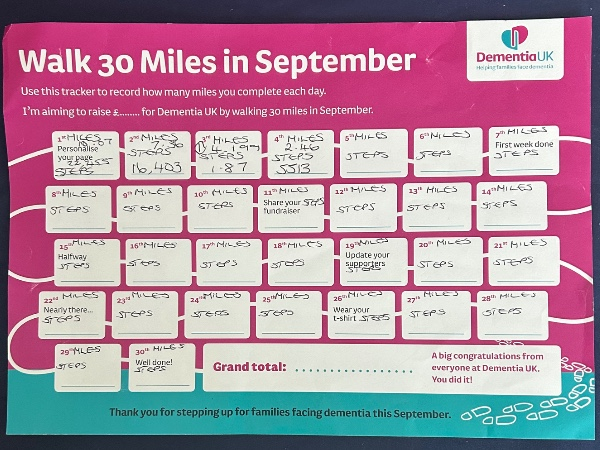 Walk 30 Miles in September
DementiaUK
Helping families face dementia
Use this tracker to record how many miles you complete each day.
I'm aiming to raise £........ for Dementia UK by walking 30 miles in September.
1st MILES
Personalise
your page
STEPS
2nd MILES
7.36
STEPS
16,403
3rd MILES
STEPS
1.87
4th MILES
2.46
STEPS
5513
5th MILES
STEPS
6th MILES
STEPS
7th MILES
First week done
STEPS
8th MILES
STEPS
9th MILES
STEPS
10th MILES
STEPS
11th MILES
Share your STEPS
fundraiser
12th MILES
STEPS
13th MILES
STEPS
14th MILES
STEPS
15th MILES
Halfway
STEPS
16th MILES
STEPS
17th MILES
STEPS
18th MILES
STEPS
19th MILES
Update your
supporters
STEPS
20th MILES
STEPS
21st MILES
STEPS
22nd MILES
Nearly there...
STEPS
23rd MILES
STEPS
24th MILES
STEPS
25th MILES
STEPS
26th MILES
Wear your
t-shirt STEPS
27th MILES
STEPS
28th MILES
STEPS
29th MILES
STEPS
30th MILES
Well done!
STEPS
Grand total: ..................
A big congratulations from
everyone at Dementia UK.
You did it!
Thank you for stepping up for families facing dementia this September.